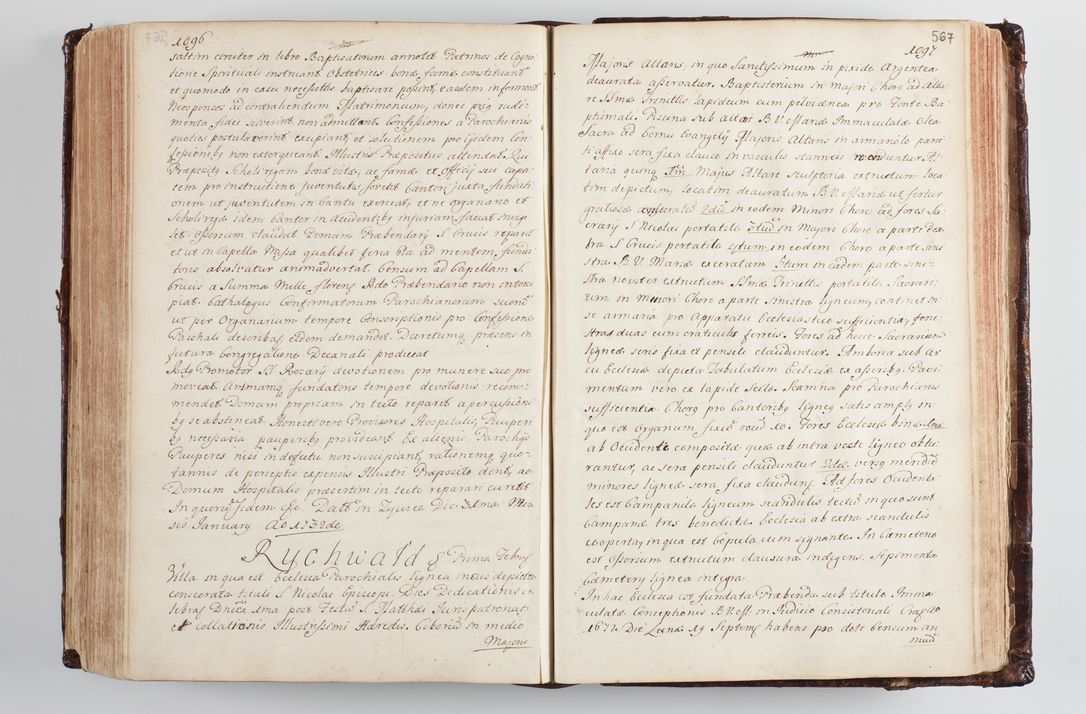 1096
saltem circiter in libro Baptisatorum annotet Patrinos de Cogna
tione Spirituali instruant Obstetrices bonæ famæ constituant
et quomodo in casu necessitatis baptisare possint easdem informent
Neosponsos ad contrahendum Matrimonium, donec prius rudi
menta fidei sciverint non admittant. Confessiones a Parochianis
quoties postulaverint excipiant et solutionem pro ijsdem Con
fessionibus non extorqueant Illustris Præpositus attendat. Qui
Præpositus Scholiregam bonæ vitæ, ac famæ et officij sui capa
cem pro instructione juventutis foveat Cantor juxta fundati
onem ut juventutem in Cantu exerceat, et ne organario et
Scholiregæ idem Cantor in accidentibus injuriam faciat invigi
let. Ossorium claudat Domum Præbendarij S. Crucis reparet
et ut in Capella Missa qualibet feria 6ta ad mentem fundat
toris absolvatur animadvertat. Censum ad Capellam S.
Crucis a Summa Mille florenorum Rdo Præbendario non interci
piat. Cathalogus Confirmatorum Parochianorum
ut per Organarium tempore Conscriptionis pro Confessione
Paschali describatur eidem demandet. Decretumque præsens in
futura Congregatione Decanali producat
Rdus Promotor SS. Rosarij devotionem pro munere suo pro
moveat. Animamque fundatoris tempore devotionis recom
mendet Domum propriam in tecto reparet a percussioni
bus se abstineat. Honesti vero Provisores Hospitalis, Pauperi
bus necessaria pauperibus provideant. Ex alienis Parochijs
Pauperes nisi in defectu non suscipiant, rationemque quo
tannis de perceptis expensis Illustri Præposito dent, ac
Domum Hospitalis præsertim in tecto reparari curent
In quorum fidem &c. Datum in Zywiec Die 31ma Men
sis January Ao 1732do
Rychwald 8 Prima Febrj
Villa in qua est Ecclesia Parochialis lignea intus depicta
consecrata tituli S. Nicolai Episcopi. Dies Dedicationis ce
lebratur Dnica 1ma post Festum S. Matthæi Juris patronatus
et collationis Illustrissimi Hæredis. Ciborium in medio
Majoris
567
1097
Majoris Altaris, in quo Sanctissimum in pixide Argentea
deaurata asservatur. Baptisterium in Majori Choro ad Alta
re SSmæ Trinittis lapideum cum pelvi ænea pro Fonte Ba
ptismali. Piscina sub altari B. V. Mariæ Immaculatæ Olea
Sacra ad Cornu Evangelij Majoris Altaris in armariolo pari
eti affixo sera fixa clauso in vasculis stanneis reconduntur. Al
taria quinque 1um Majus Altare sculptoria extructum loca
tim depictum, locatim deauratum B. V. Mariæ ut fertur
gratiosæ consecratum 2dum in eodem Minori Choro ad fores Sa
crary S. Nicolai portatile 3tium in Majori Choro a parte dex
tra S. Crucis portatile 4tum in eodem Choro a parte sinis
stra B. V. Mariæ execratum 5tum in eadem parte sini
stra noviter extructum SSmæ Trinittis portatile. Sacrari
um in Minori Choro a parte sinistra ligneum, continet in
se armaria pro Apparatu Ecclesiastico sufficientia, fene
stras duas cum craticulis ferreis. Fores ad hocce Sacrarium
ligneæ seris fixa et pensili clauduntur. Ambona sub ar
cu Ecclesiæ depicta Tabulatum Ecclesiæ ex asseribus Pavi
mentum vero ex lapide secto. Scamna pro Parochianis
sufficientia. Chorus pro Cantoribus ligneus satis amplus in
quo est Organum
ab Occidente compositæ quæ ab intra vecte ligneo obtu
rantur, ac sera pensili clauduntur 2dæ versus meridiem
minores ligneæ sera fixa clauduntur. Ad fores Occidenta
les est Campanile ligneum scandulis tectum in quo sunt
Campanæ tres benedictæ. Ecclesia ab extra scandulis
cooperta, in qua est Copula cum signante. In Cæmeterio
est Ossorium extructum clausura indigens. Sepimenta
Cæmetery lignea integra
In hac Ecclesia est fundata Præbenda sub titulo Imma
culatæ Conceptionis B. V. M. in Judicio Consistoriali erecto
1672 Die Lunæ 19 Septembris habens pro dote Censum an
nuum